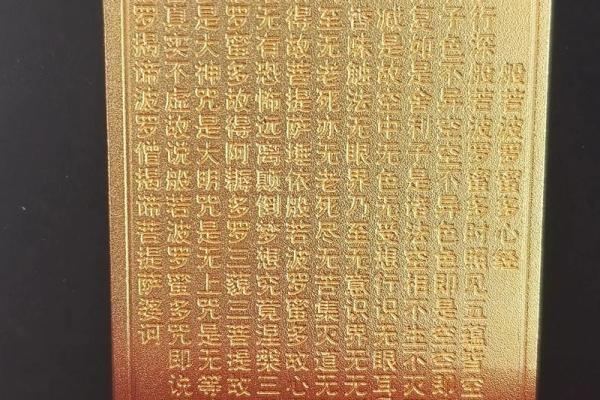 般若波罗蜜多心经
行深般若波罗蜜多时照见五蕴皆空
子色不异空空不异色色即是空空即
复如是舍利子是诸法空相不生不灭
减是故空中无色无受想行识无眼耳
香味触法无眼界乃至无意识界无无
至无老死亦无老死尽无苦集灭道无
得故菩提萨埵依般若波罗蜜多故心
无有恐怖远离颠倒梦想究竟涅槃三
罗蜜多故得阿耨多罗三藐三菩提故
是大神咒是大明咒是无上咒是无等
真实不虚故说般若波罗蜜多咒即说
罗揭谛波罗僧揭谛菩提萨婆诃